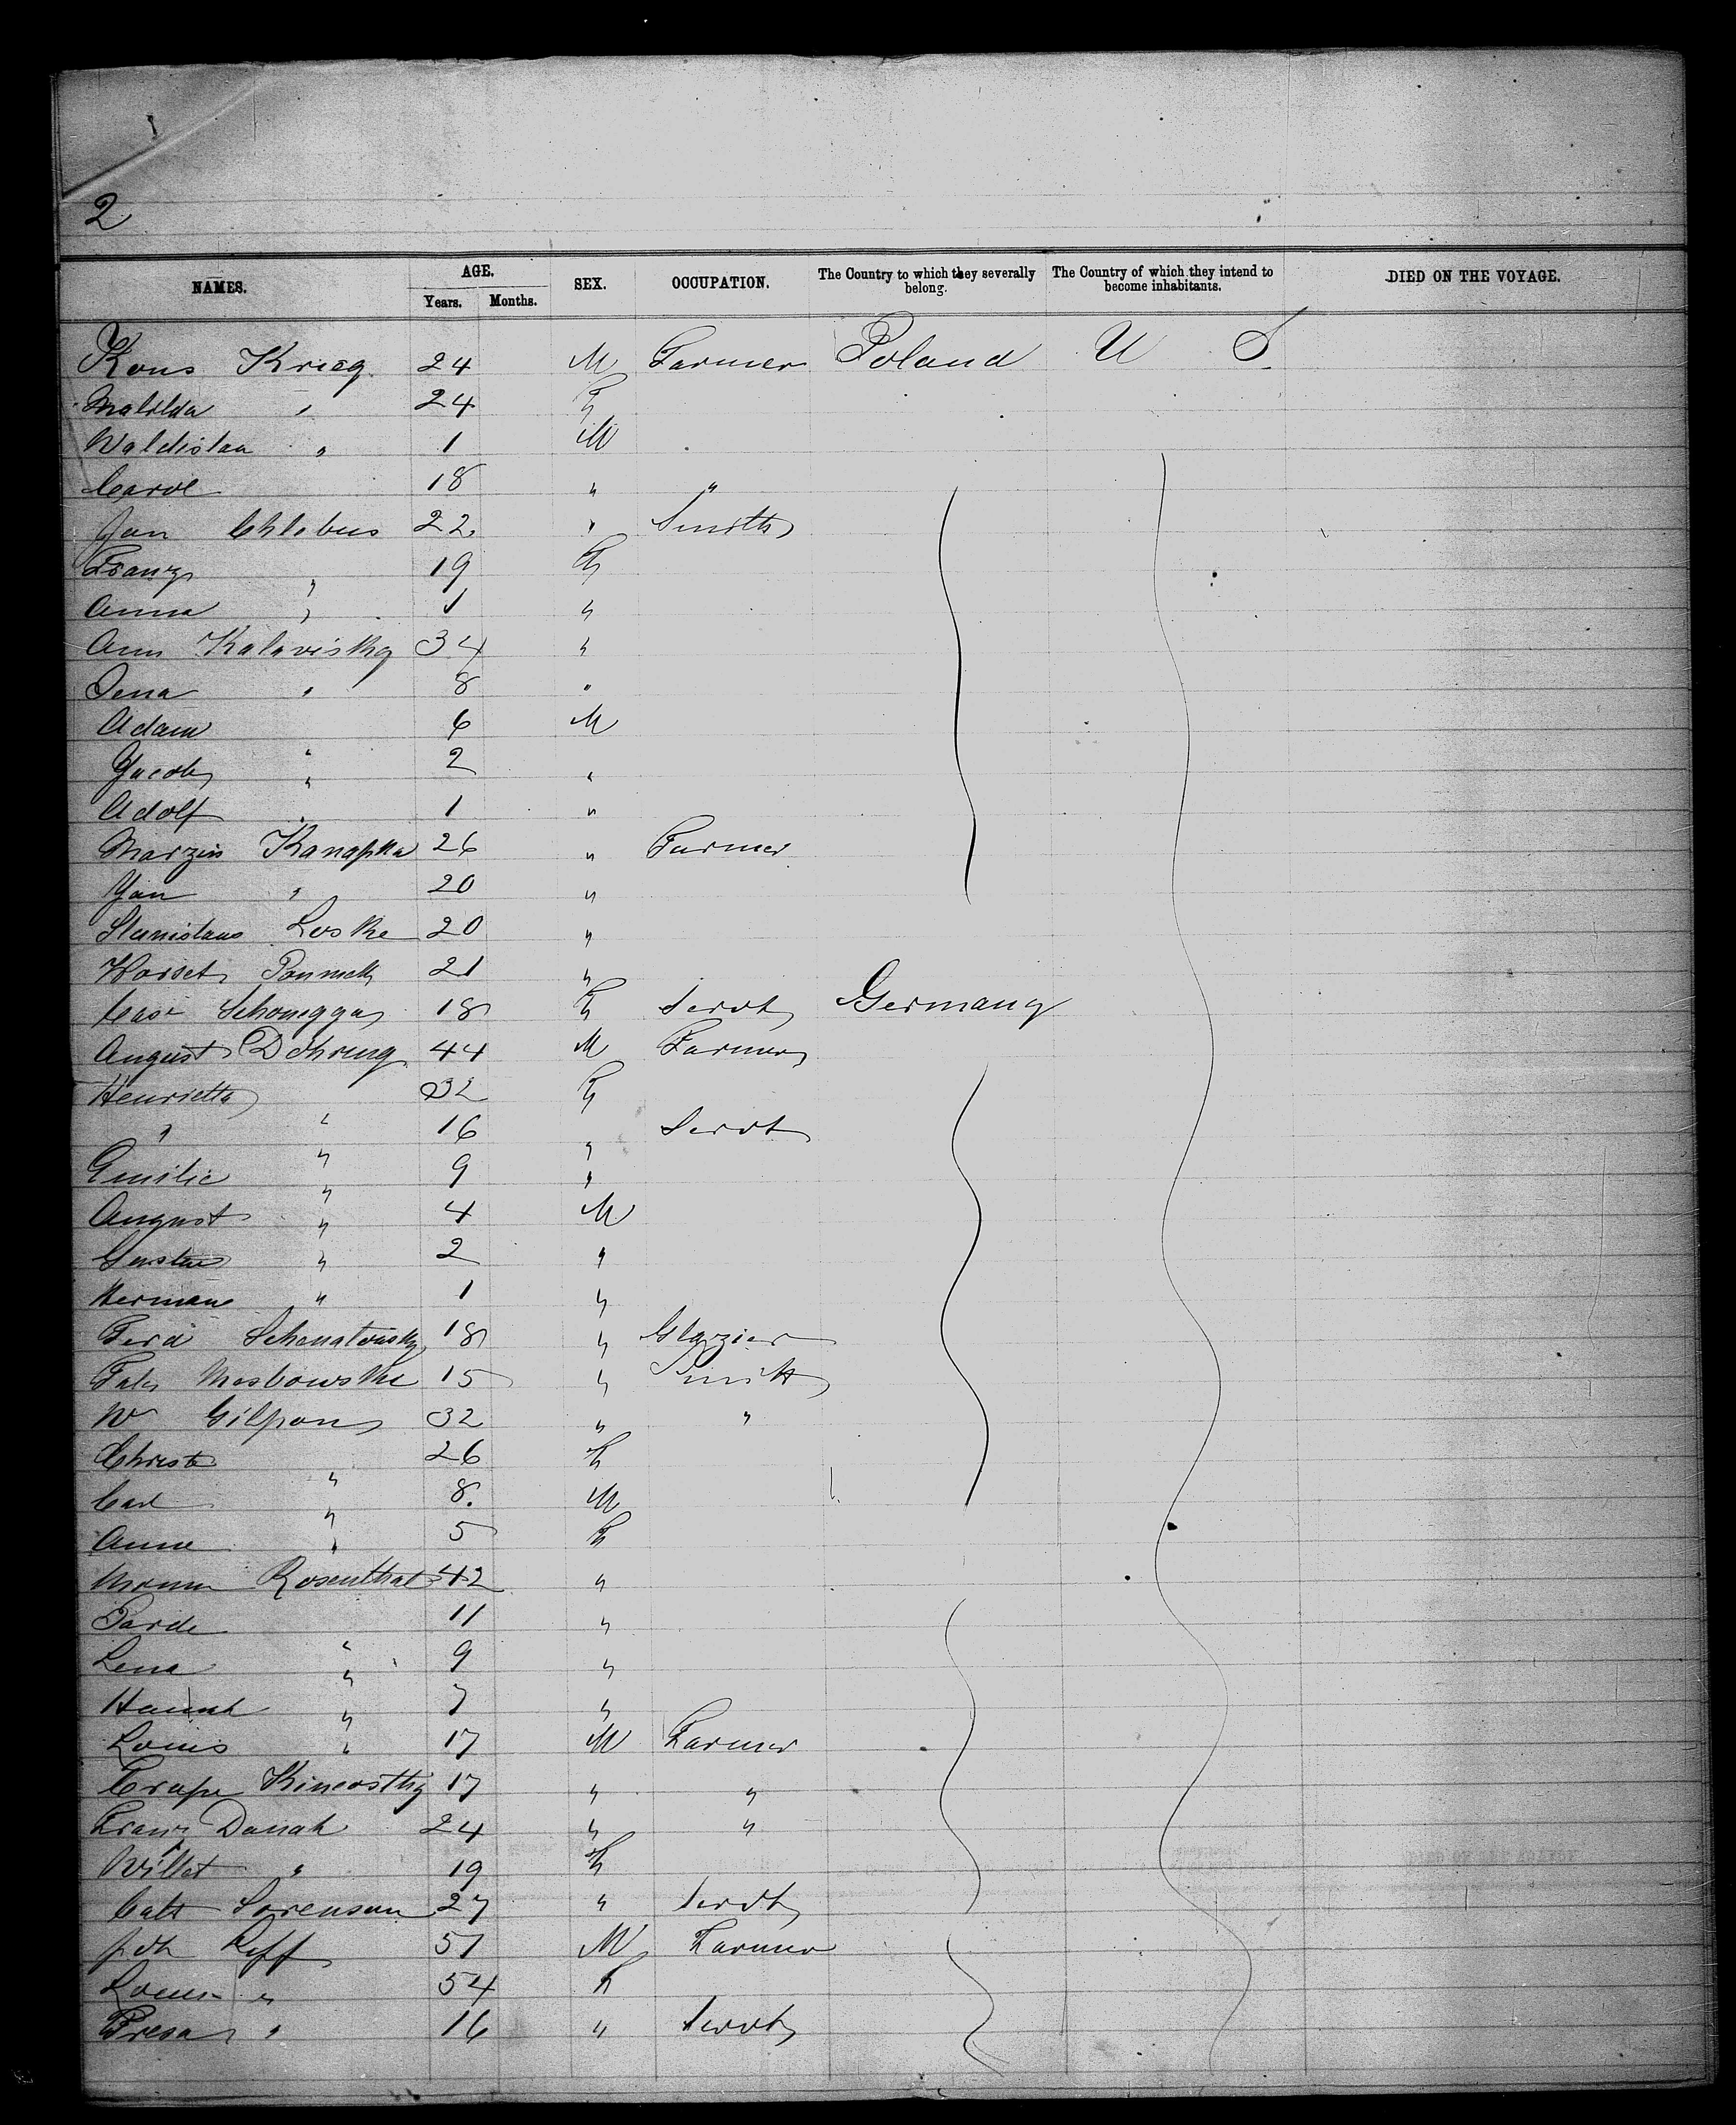 2
NAMES. AGE. SEX. OCCUPATION. The Country to which they severally belong. The Country of which they intend to become inhabitants. DIED ON THE VOYAGE.
Years. Months.
Kons Krieg 24 M Farmer Poland U S.
Matilda " 24 F
Waldislaa " 1 M
Carol 18 " "
Jan Chlebus 22 " Smith
Franz " 19 F
Anna " 1 "
Ann Kalavisky 34 "
Jena " 8 "
Adam 6 M
Jacob " 2 "
Adolf " 1 "
Marzin Kanapka 26 " Farmer
Jan " 20 "
Stanislaus Loske 20 "
21 "
18 F Servt Germany
August Dohring 44 M Farmer
Henrietta 32 F
" " 16 " Servt
Emilie " 9 "
August " 4 M
Gustav " 2 "
Herman " 1 "
Ferd 18 " Glazier
Mosbowske 15 " Smith
W Gilpon 32 " "
Christ 26 F
Carl " 8. M
Anna " 5 F
Rosenthal 42 "
11 "
Lena " 9 "
Hannah " 7 "
Louis " 17 M Farmer
17 " "
Franz Danah 24 " "
" 19 F
Cath Sorensen 27 " Servt
Joh Reff 51 M Farmer
Louisa " 54 F
Presa " 16 " Servt